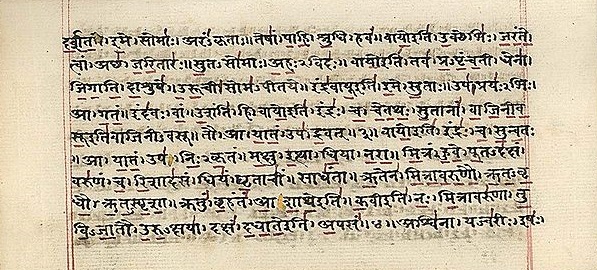 दर्शत॒। इ॒मे। सोमाः॑। अरं॑ऽकृताः। तेषां॑। पा॒हि। श्रु॒धि। हवं॑॥ वायो॒इति॑। उ॒क्थेभिः॑। ज॒रं॒ते॒
त्वां। अच्छ॑। ज॒रि॒तारः॑॥ सु॒तऽसो॑माः। अ॒हः॒ऽविदः॑॥ वायो॒इति॑। तव॑। प्र॒ऽपृं॒च॒ती। धेना॑।
जि॒गा॒ति॒। दा॒शुषे॑॥ उ॒रू॒ची। सोम॑ऽपीतये॥ इंद्र॑वायू॒इति॑। इ॒मे। सु॒ताः। उप॑। प्रयः॑ऽभिः।
आ। ग॒तं॒॥ इंद॑वः। वां॒। उ॒शंति॑। हि॥ वायो॒इति॑। इंद्रः॑। च॒। चे॒त॒थः॒। सु॒तानां॑। वा॒जि॒नी॒व
सू॒इति॑वाजिनीऽवसू॥ तौ। आ। या॒तं॒। उप॑। द्र॒वत्॥३॥ वायो॒इति॑। इंद्रः॑। च॒। सु॒न्व॒तः
॥ आ। या॒तं॒। उप॑। निः॒ऽकृ॒तं॥ म॒क्षु। इ॒त्था। धि॒या। न॒रा॒॥ मि॒त्रं। हु॒वे॒। पू॒तऽद॑क्षं।
वरु॑णं। च॒। रि॒शाद॑सं॥ धियं॑। घृ॒ताचीं॑॥ साधं॑ता॥ ऋ॒तेन॑। मि॒त्रा॒व॒रु॒णौ॒। ऋ॒त॒ऽवृ॒
धौ॒। ऋ॒त॒ऽस्पृ॒शा॒॥ क्रतुं॑। बृ॒हंतं॑। आ॒शा॒थे॒इति॑॥ क॒वीइति॑। नः॒। मि॒त्रावरु॑णा। तु॒
वि॒ऽजा॒तौ। उ॒रु॒ऽक्षया॑॥ दक्षं॑। द॒धा॒ते॒इति॑। अ॒पसं॑॥४॥ अश्वि॑ना। यज्व॑रीः। इषः॑।